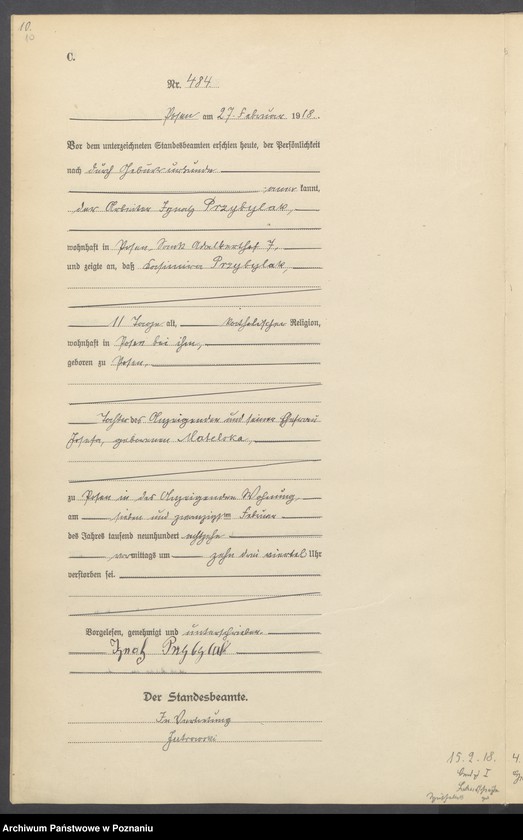 10.
10
C.
Nr. 484
Posen am 27. Februar 1918.
Vor dem unterzeichneten Standesbeamten erschien heute, der Persönlichkeit
nach durch Geburtsurkunde
kannt,
der Arbeiter Ignatz Przybylak,
wohnhaft in Posen, Sankt Adalberthof 7,
und zeigte an, daß Kasimira Przybylak,
11 Tage alt, katholischer Religion,
wohnhaft in Posen bei ihm,
geboren zu Posen,
Tochter des Anzeigenden und seiner Ehefrau
Josefa, geborenen Matelska,
zu Posen in des Anzeigenden Wohnung,
am sieben und zwanzigsten Februar
des Jahres tausend neunhundert achtzehn
vormittags um zehn drei viertel Uhr
verstorben sei.
Vorgelesen, genehmigt und unterschrieben.
Ignatz Przybylak
Der Standesbeamte.
In Vertretung
15. 2. 18.
I
Archiwum Państwowe w Poznaniu